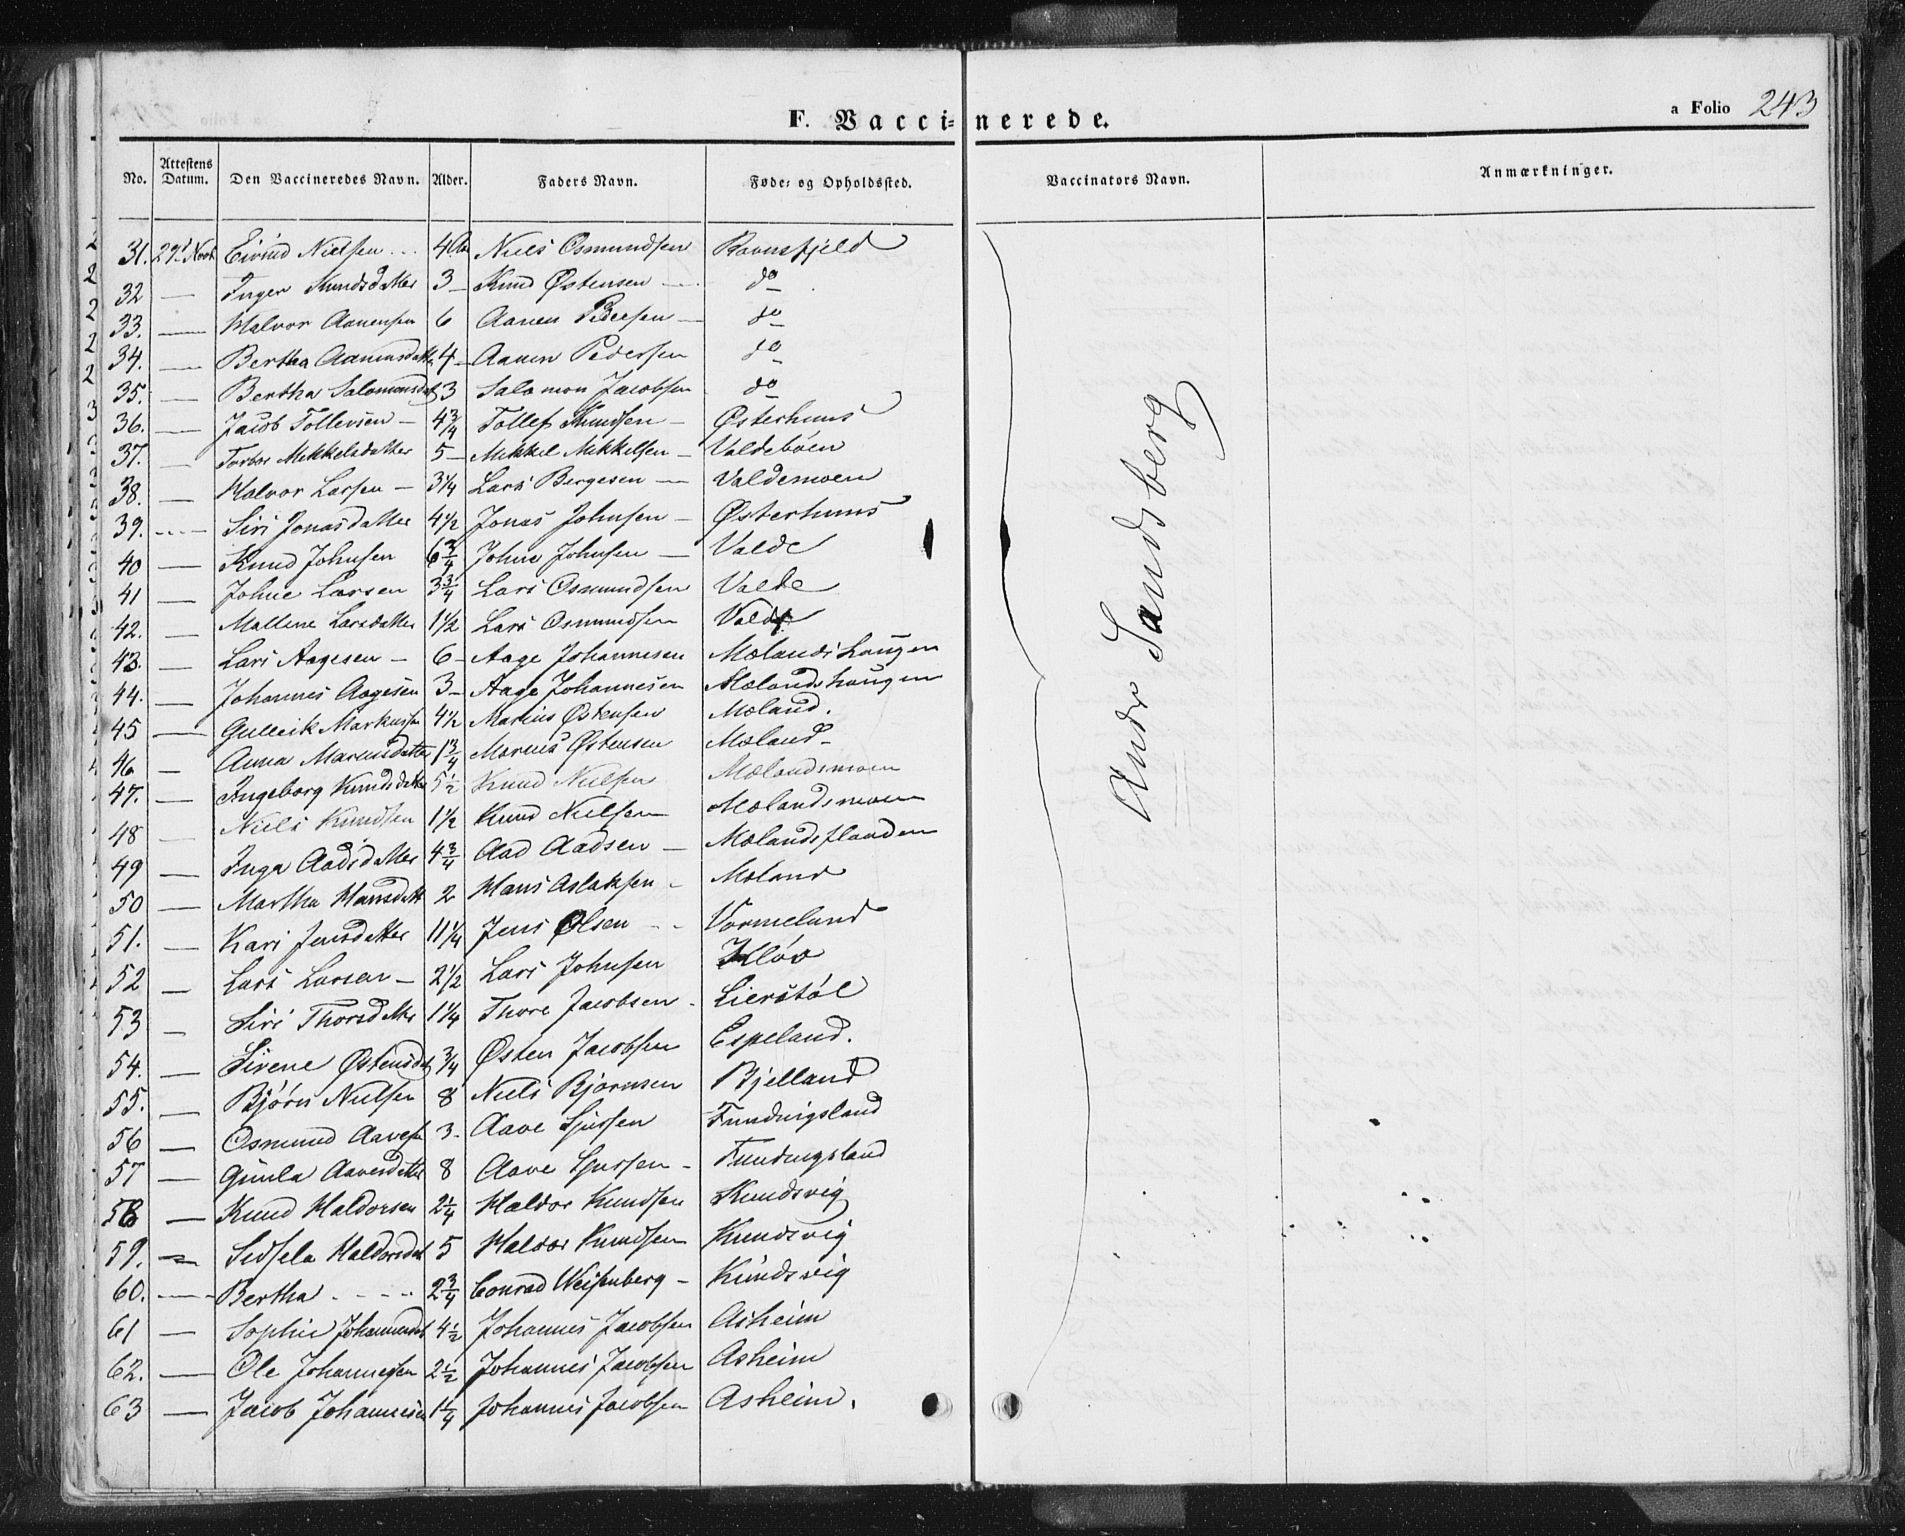 F. Vaccinerede.
a Folio 243
No. Attestens Datum. Den Vaccineredes Navn. Alder. Faders Navn. Føde- og Opholdssted. Vaccinators Navn. Anmærkninger.
31. 29' Novb Eivind Nielsen 4 Aa Niels Osmundsen Ravnsfjeld
32 — Inger Knudsdatter 3 — Knud Østensen — do
33. — Halvor Aanensen 6 Aanen Pedersen — do
34. — Bertha Aanensdatt 4 — Aanen Pedersen do
35. — Bertha Salomonsdat 3 Salomon Jacobsen do
36. — Jacob Tollevsen — 4 3/4 Tollef Knudsen — Østerhuus
37. — Torbor Mikkelsdatter 5 — Mikkel Mikkelsen — Valdebøen
38. — Halvor Larsen — 3 1/4 Lars Bergesen — Valdemoen
39. — Siri Jonasdatter 4 1/2 Jonas Johnsen — Østerhuus
40 — Knud Johnsen 6 3/4 Johne Johnsen — Valde
41 — Johne Larsen 3 3/4 Lars Osmundsen Valde
42. — Mallene Larsdatter 1 1/2 Lars Osmundsen Valde
43. — Lars Aagesen — 6 — Aage Johannesen Mølandshaugen
44. — Johannes Aagesen 3 — Aage Johannesen Mølandshaugen
45 — Gulleik Markussen 4 1/2 Marius Østensen Møland.
46 — Anna Mariusdatter 1 3/4 Marius Østensen Møland —
47. — Ingeborg Knudsdatter 5 1/2 Knud Nielsen Mølandsmoen
48 — Niels Knudsen 1 1/2 Knud Nielsen Mølandsmoen
49 — Inga Aadsdatter 4 3/4 Aad Aadsen — Mølandsflaaden
50 — Martha Hansdatt 2 Hans Aslaksen — Møland
51. — Kari Jensdatter 11 1/4 Jens Olsen — Vormeland
52 — Lars Larsen — 2 1/2 Lars Johnsen Kløv
53 — Siri Thorsdatter 1 1/4 Thore Jacobsen — Lierstøl
54. — Sirene Østensdat 3/4 Østen Jacobsen Espeland.
55. — Bjørn Nielsen 8 Niels Bjørnsen Bjelland
56 — Osmund Aavesen 3 — Aave Sjursen Fundingsland
57 — Gunla Aavesdatter 8 Aave Sjursen — Fundingsland
58 — Knud Haldorsen 2 1/4 Haldor Knudsen Knudsvig
59. — Sidsela Haldorsdat 5 Haldor Knudsen Knudsvig
60. — Bertha — 2 3/4 Conrad Weisenberg — Knudsvig
61 — Sophie Johannesdat 4 1/2 Johannes Jacobsen Asheim
62. — Ole Johannesen 2 1/2 Johannes Jacobsen Asheim
63 — Jacob Johannesen 1 1/4 Johannes Jacobsen Asheim.
Sandsberg